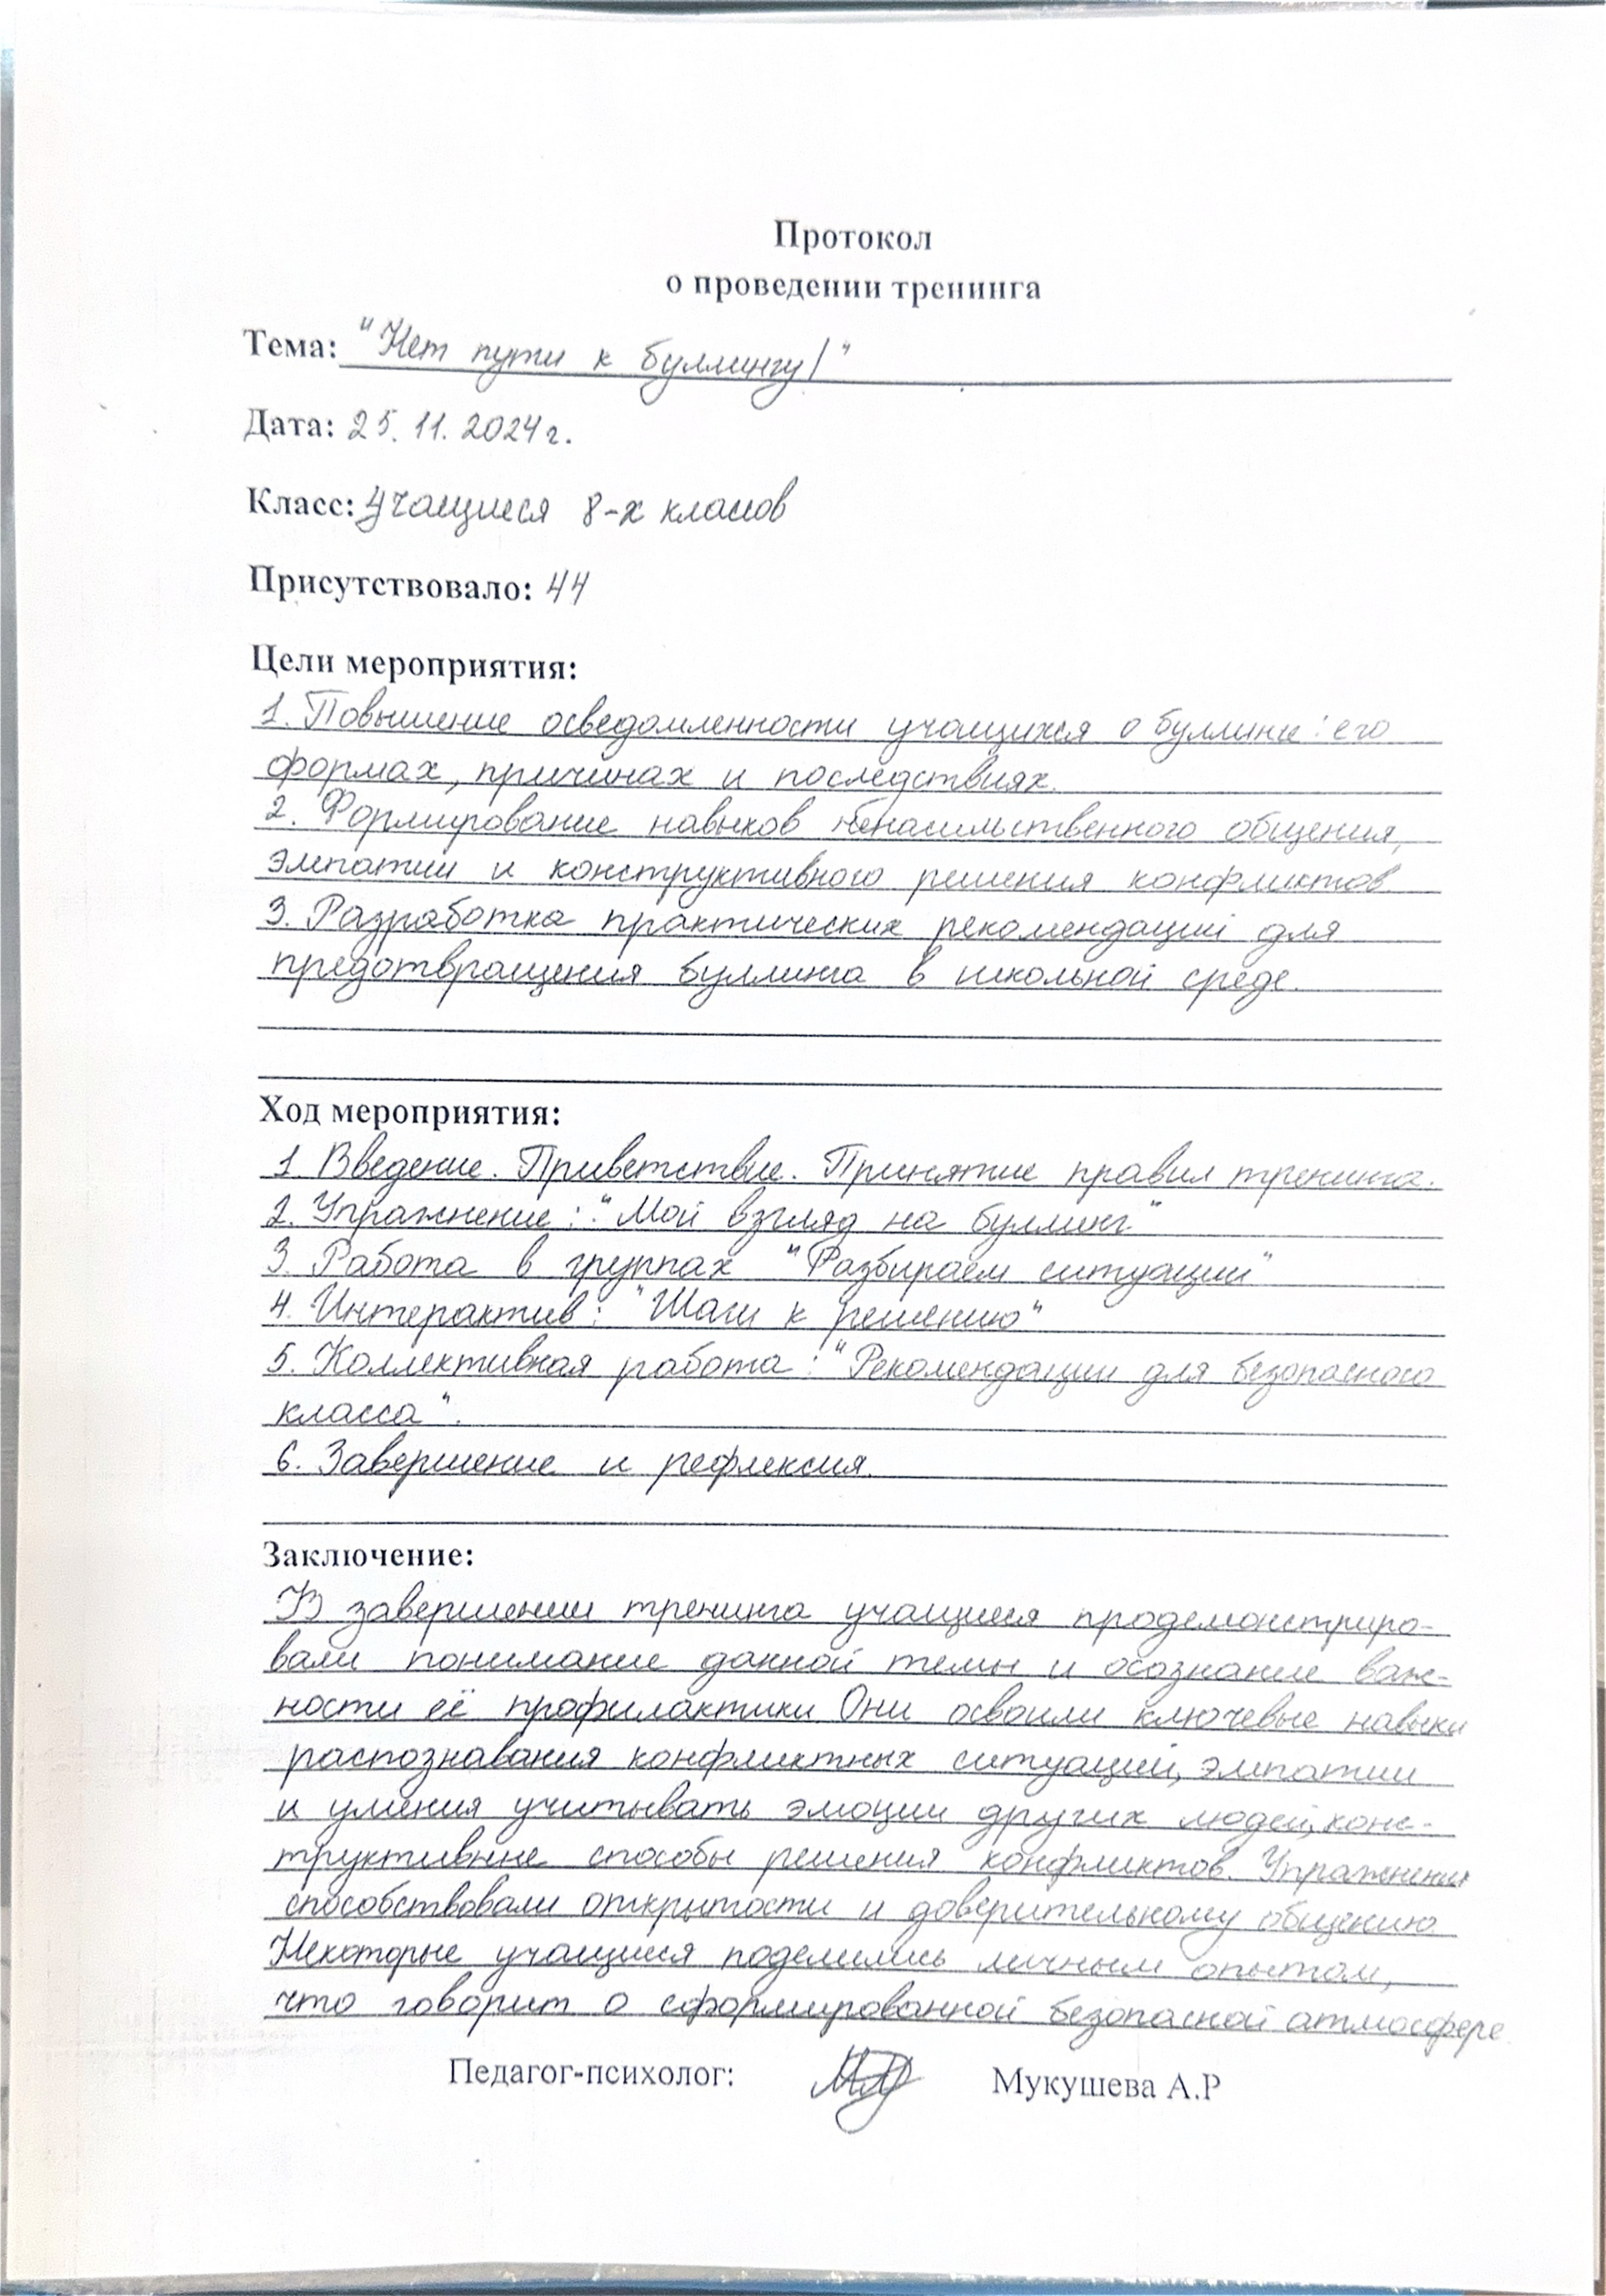 Протокол
о проведении тренинга
Тема: "Нет пути к буллингу!"
Дата: 25.11.2024г.
Класс: Учащиеся 8-х классов
Присутствовало: 44
Цели мероприятия:
1. Повышение осведомленности учащихся о буллинге: его
формах, причинах и последствиях.
2. Формирование навыков ненасильственного общения,
эмпатии и конструктивного решения конфликтов.
3. Разработка практических рекомендаций для
предотвращения буллинга в школьной среде.
Ход мероприятия:
1. Введение. Приветствие. Принятие правил тренинга.
2. Упражнение: "Мой взгляд на буллинг"
3. Работа в группах "Разбираем ситуации"
4. Интерактив: "Шаги к решению"
5. Коллективная работа: "Рекомендации для безопасного
класса".
6. Завершение и рефлексия.
Заключение:
В завершении тренинга учащиеся продемонстриро-
вали понимание данной темы и осознание важ-
ности её профилактики. Они освоили ключевые навыки
распознавания конфликтных ситуаций, эмпатии
и умения учитывать эмоции других людей, конс-
труктивные способы решения конфликтов. Упражнения
способствовали открытости и доверительному общению
Некоторые учащиеся поделились личным опытом,
что говорит о сформированной безопасной атмосфере.
Педагог-психолог: Мукушева А.Р